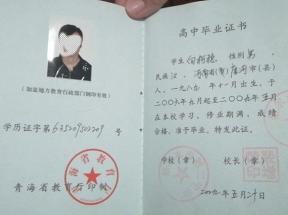 (加盖地方教育行政部门钢印有效)
学历证字第 号
青海省教育厅印制
高中毕业证书
学生 性别男,
民族汉, 省(市) 市(县)
人,一九八 年十一月出生,于
二〇〇六年九月起至二〇〇九年五月
在本校学习,修业期满,成绩
合格,准予毕业,特发此证。
学校(章) 校长(章)
二〇〇九年五月二十日